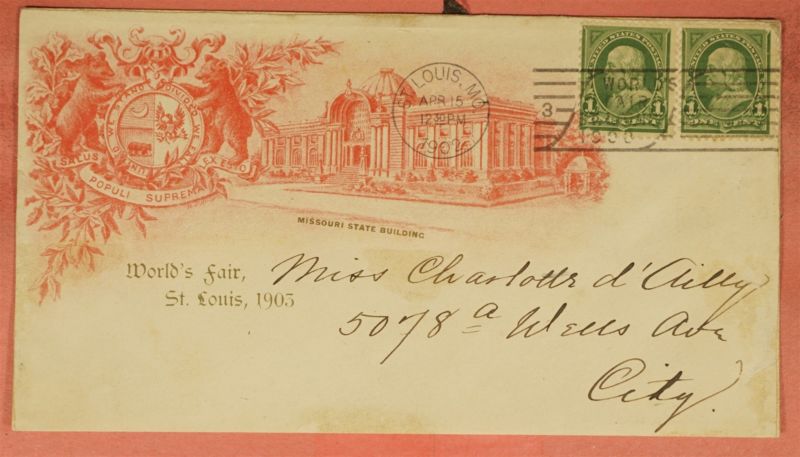 UNITED WE STAND DIVIDED WE FALL
SALUS POPULI SUPREMA LEX ESTO
MISSOURI STATE BUILDING
World's Fair,
St. Louis, 1903
ST. LOUIS, MO
APR 15
12 30 PM
1902
3
WORLD'S
FAIR
1903
UNITED STATES POSTAGE
1 ONE CENT 1
1 ONE CENT 1
Miss Charlotte d'Ailly
5078a Wells Ave
City.